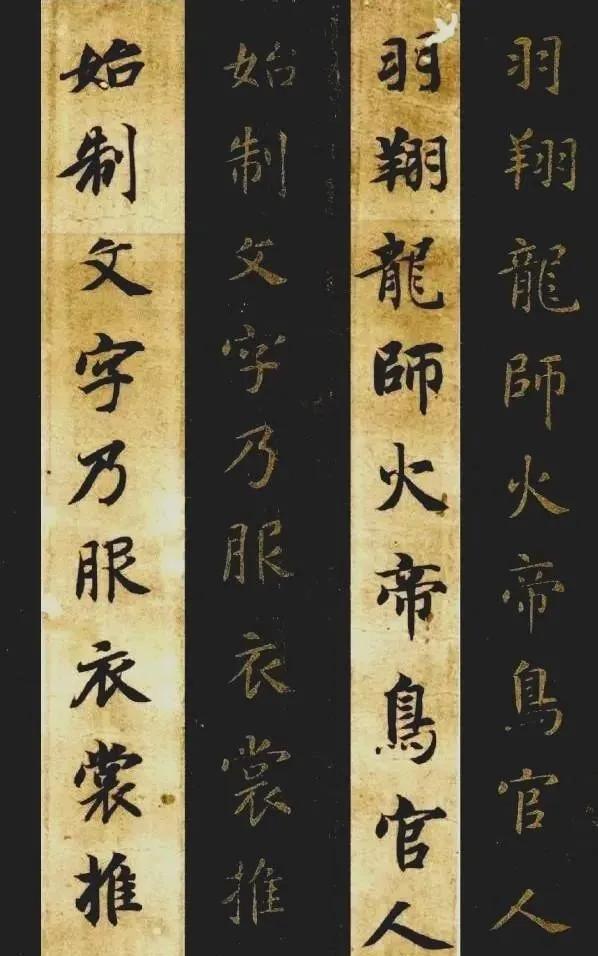 羽翔龍師火帝鳥官人
羽翔龍師火帝鳥官人
始制文字乃服衣裳推
始制文字乃服衣裳推